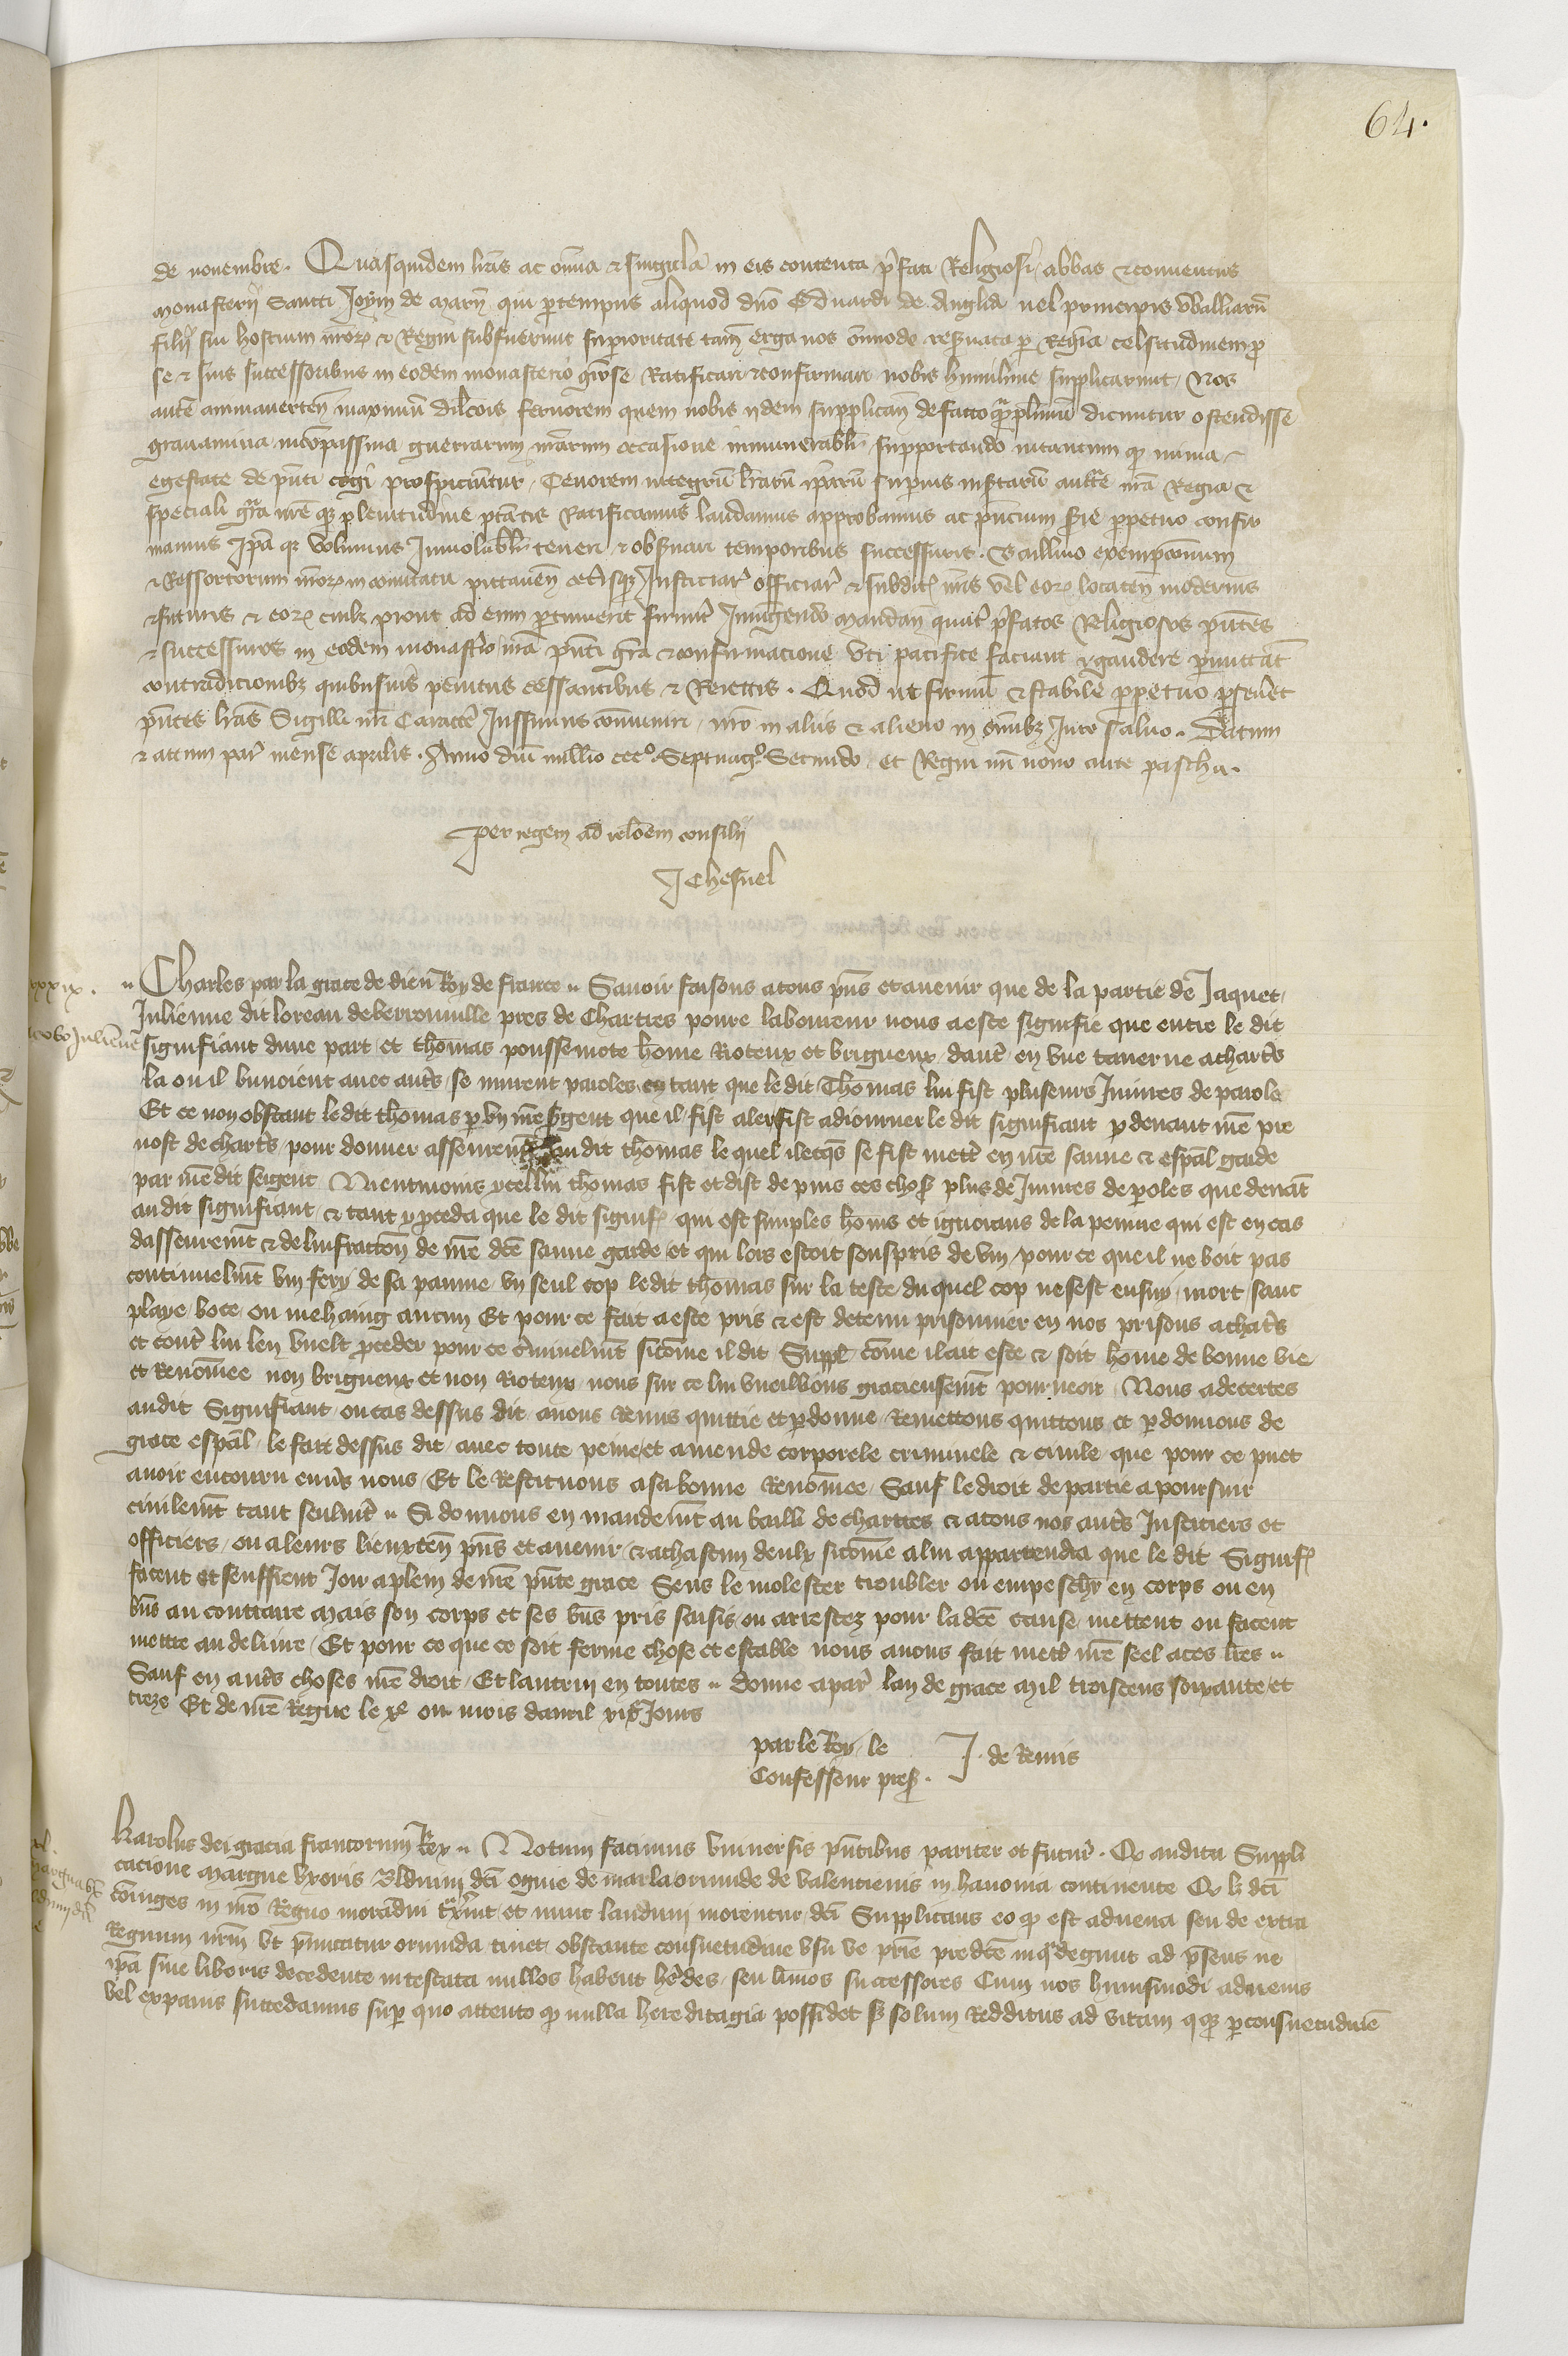 64.
de novembre. Quasquidem lras ac omia & singula in eis contenta pfati Religiosi abbas & conventus
monasterij Sancti Joyni de marn qui pertempus aliquod dno Eduardi de Anglia vel principis Walliarum
filij sui hostium nror & Regni subfuerunt superioritate tam erga nos omnimodo reservata per Regiam celsitudinem pro
se & suis successoribus in eodem monasterio gnose Ratificari & confirmari nobis humilime supplicarunt / Nos
autem animavertentes maximum dilcois fervorem quem nobis ijdem supplican de facto dicuntur ostendisse
gravamina guerrarum nrarum occasione innumerabilr supportando intantum quod nimia
egestate de pnti cogi prospiciuntur / Tenorem integrum lrarum iparum superius insertarum aucte nra Regia &
speciali gra nre que plenitudine ptatis Ratificamus laudamus approbamus ac pntium serie perpetuo confir
mamus Ipa que volumus Inviolabilr teneri & observari temporibus successuris. Baillivo exempcionum
& Ressortorum nror in comitatu pictaven Justiciar officiar & subdit nris vel eor locaten modernis
& futuris & eor cuilz prout ad eum pertinuerit Iniungendo mandan quatenus pfatos Religiosos pntes
& successuros in eodem monastio nra pnti gra & confirmacione uti pacifice faciant & gaudere permittat
contradictionibz quibusvis penitus cessantibus & Reiectis. Quod ut firmum & stabile perpetuo perseveret
pntes lras Sigilli nri Caractere Jussimus communiri / nro in aliis & alieno in omibz Jure salvo. Datum
& actum par mense aprilis. Anno dni millio ccc° Septuag° Secundo / et Regni nri nono ante pascha.
per regem ad relonem consilij
J Chesnel
xxxix.
Jacobo Julienne
Charles par la grace de dieu Roy de france Savoir faisons atous pns et avenir que de la partie de Jaquet
Julienne dit loreau deberrouville pres de Chartres povre laboureur nous aeste signifie que entre le dit
signifiant dune part et thomas poussemote home Rioteux et brigueux / dautre en une taverne achartres
la ou il buvoient avec autres / se murent paroles en tant que le dit Thomas lui fist pluseurs Injures de parole
Et ce non obstant ledit thomas par un nre sergent que il fist aler fist adiourner le dit signifiant par devant nre pre
vost de chartres / pour donner asseurement au dit thomas le quel ilecques se fist mettre en nre sauve & espal garde
par nredit sergent Nientmoins ycellui thomas fist et dist de puis ces choses plus de Injures de paroles que devant
au dit signifiant / & tant proceda que le dit signif qui est simples homs et ignorans de la peinne qui est en cas
dasseurement & de linfraction de nre dce sauve garde / et qui lors estoit souspris de vin / pour ce que il ne boit pas
continuelmt vin fery de sa paume un seul cop ledit thomas sur la teste du quel cop nesest ensuy mort sanc
playe boce / ou mehaing aucun Et pour ce fait aeste pris & est detenu prisonnier en nos prisons achartres
et contre lui len vuelt proceder pour ce criminelmt sicome il dit Suppl come il ait este & soit home de bonne vie
et Renomee non brigueux et non Rioteux nous sur ce lui vueillons gracieusemt pourveoir / Nous adecertes
audit Signifiant / ou cas dessus dit avons Remis quittie et pardonne Remettons quittons et pardonnons de
grace espal / le fait dessus dit avec toute peine et amende corporele criminele & civile que pour ce puet
avoir encouru envers nous / Et le Restituons asa bonne Renomee / Sauf le droit de partie apoursuir
civilemt tant seulmt Si donnons en mandemt au bailli de chartres & atous nos autres Justiciers et
officiers / ou aleurs lieuxten pns et avenir / & achascun deulx sicome alui appartendra que le dit Signif
facent et seuffrent Joir aplein de nre pnte grace Sens le molester troubler ou empescher en corps ou en
biens au contraire Mais son corps et ses biens pris saisis ou arrestez pour la dce cause mettent ou facent
mettre au delivre / Et pour ce que ce soit ferme chose et estable nous avons fait mettre nre seel aces lres
Sauf en autres choses nre droit / Et lautrui en toutes Donne apar lan de grace Mil troiscens soixante et
treze Et de nre Regne le xe ou mois davril Jours
par le Roy / le
Confesseur pres.
J. de Remis
xl.
Karolus dei gracia francorum Rex Notum facimus Universis pntibus pariter et futur. Q audita Suppli
cacione Margue uxoris Balduini dci Ogiue de marla oriunde de valencienis in hanonia continente Q li dci
coniuges in nro Regno moraduri & nunc lauduni morentur / dca Supplicans eo quod est advena seu de extra
Regnum nrm ut punicatur oriunda timet obstante consuetudine usu ve prie predce inqua degunt ad presens ne
ipa sine liberis decedente intestata nullos habent heredes / seu limos successores Cum nos huiusmodi advenis
vel expavis succedamus super quo attento quod nulla hereditagia possidet solum Redditus ad vitam per consuetudinem